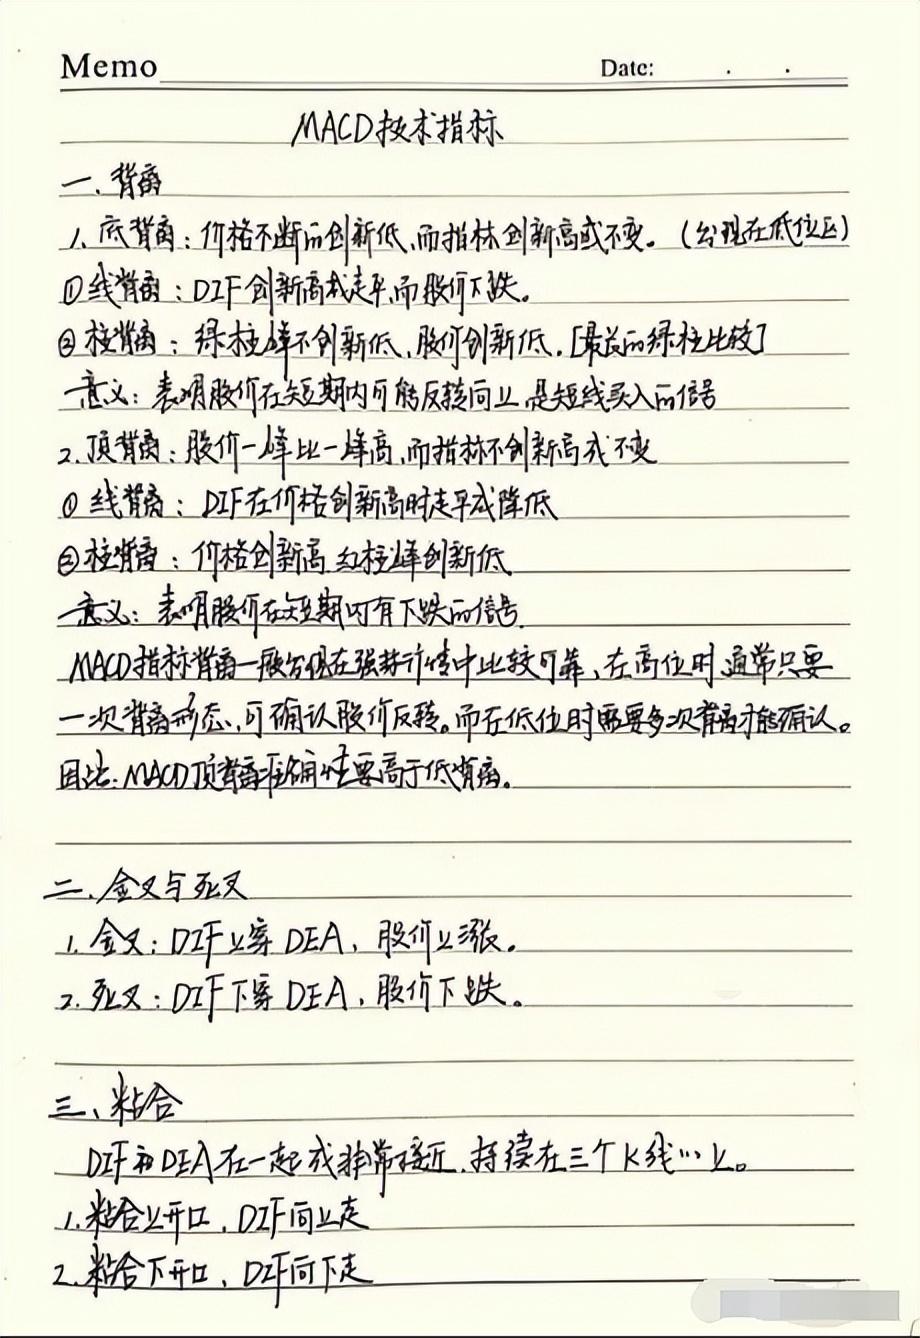 Memo
Date: . .
MACD技术指标
一、背离
1、底背离：价格不断的创新低,而指标创新高或不变。(出现在低位区)
①线背离：DIF创新高或走平,而股价下跌。
②柱背离：绿柱峰不创新低、股价创新低.[最前的绿柱比较]
意义：表明股价在短期内可能反转向上,是短线买入的信号
2.顶背离：股价一峰比一峰高,而指标不创新高或不变
①线背离：DIF在价格创新高时走平或降低
②柱背离：价格创新高,红柱峰创新低
意义：表明股价在短期内有下跌的信号.
MACD指标背离一般出现在强势行情中比较可靠、在高位时通常只要
一次背离形态、可确认股价反转。而在低位时需要多次背离才能确认。
因此：MACD顶背离准确性要高于低背离。
二、金叉与死叉
1.金叉：DIF上穿DEA，股价上涨。
2.死叉：DIF下穿DEA，股价下跌。
三、粘合
DIF和DEA在一起或非常接近.持续在三个K线以上。
1.粘合上开口、DIF向上走
2.粘合下开口、DIF向下走